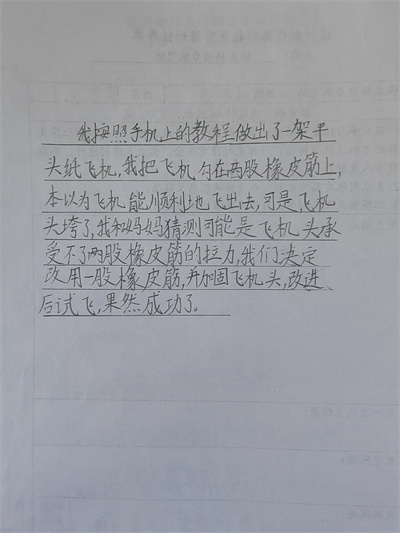 我按照手机上的教程做出了一架平
头纸飞机,我把飞机勾在两股橡皮筋上,
本以为飞机能顺利地飞出去,可是飞机
头垮了,我和妈妈猜测可能是飞机头承
受不了两股橡皮筋的拉力,我们决定
改用一股橡皮筋,并加固飞机头,改进
后试飞,果然成功了。